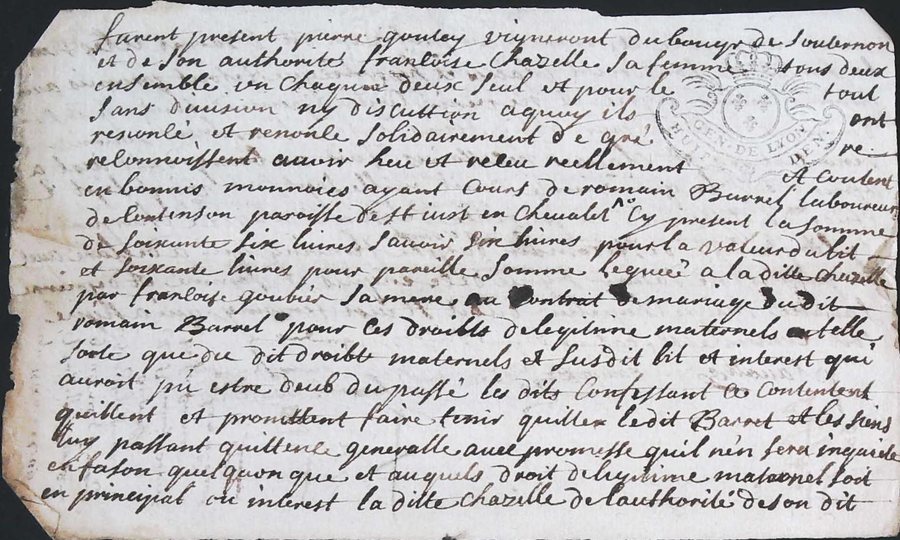 furent present pierre gouley vigneront du bourg de souternon
et de son authorité francoise chazelle sa femme tous deux
ensemble un chaqun deux seul et pour le tout
sans division ny discuttion aquoy ils ont
renonsé et renonse solidairement de gré re
reconnoissent avoir heu et receu reellement et content
en bonnis monnoies ayant cours de romain Barrel laboureur
de contenson paroisse de st iust en chevalet cy present la somme
de soixante six livres savoir six livres pour la valeur du lit
et soixante livres pour pareille somme leguée a la ditte chazelle
par francoise goubier sa mere au contrat de mariage du dit
romain Barrel pour ces droibts de legitime maternels en telle
sorte que du dit droibts maternels et susdit lit et interest qui
auroit pu estre deub du passé les dits confessant ce contentent
quittent et promettent faire tenir quitter le dit Barrel et les siens
luy passant quittence generalle avec promesse quil n'en sera inquieté
en fason quelquonque et auquels droit de legitime maternel soit
en principal ou interest la ditte chazelle de l'authorité de son dit
GEN. DE LYON